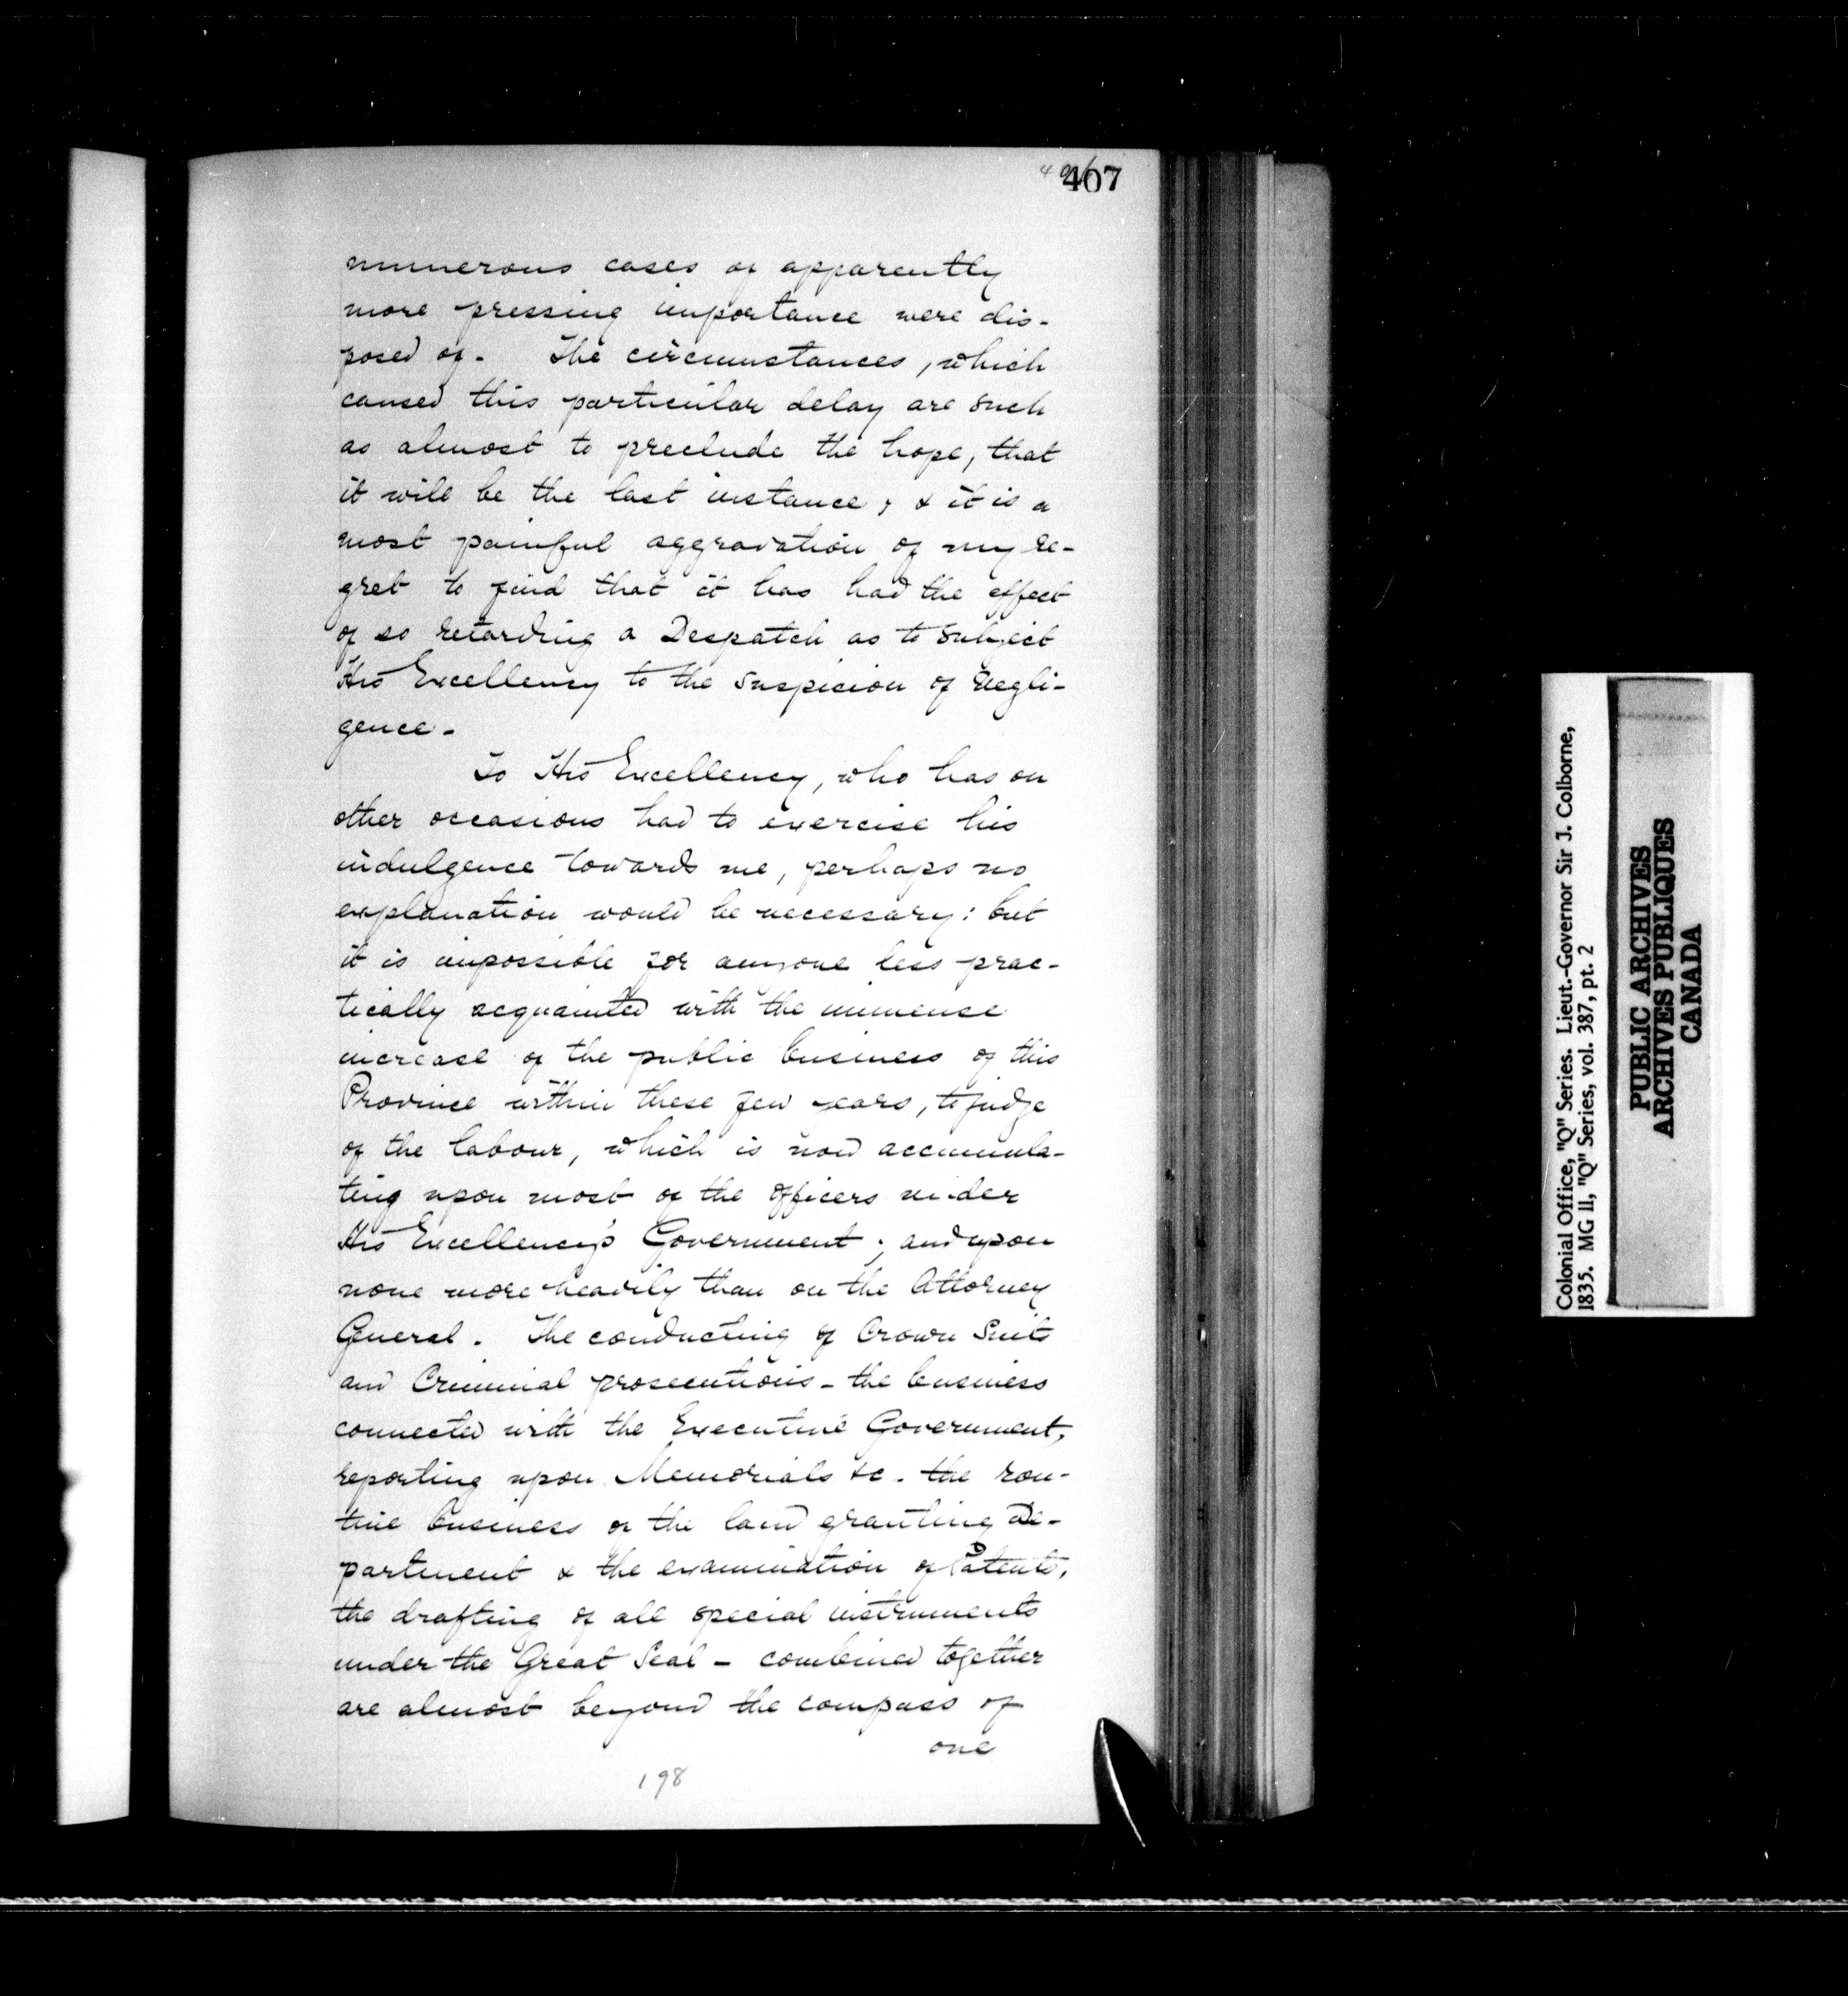 407
numerous cases of apparently
more pressing importance were dis-
posed of. The circumstances, which
caused this particular delay are such
as almost to preclude the hope, that
it will be the last instance, & it is a
most painful aggravation of my re-
gret to find that it has had the effect
of so retarding a Despatch as to subject
His Excellency to the suspicion of negli-
gence.
To His Excellency, who has on
other occasions had to exercise his
indulgence towards me, perhaps no
explanation would be necessary: but
it is impossible for anyone less prac-
tically acquainted with the immense
increase of the public business of this
Province within these few years, to judge
of the labour, which is now accumula-
ting upon most of the officers under
His Excellency's Government; and upon
none more heavily than on the Attorney
General. The conducting of Crown Suits
and Criminal prosecutions - the business
connected with the Executive Government,
reporting upon Memorials &c. the rou-
tine business of the land granting De-
partment & the examination of Patents,
the drafting of all special instruments
under the Great Seal - combined together
are almost beyond the compass of
one
198
Colonial Office, "Q" Series. Lieut.-Governor Sir J. Colborne,
1835. MG 11, "Q" Series, vol. 387, pt. 2
PUBLIC ARCHIVES
ARCHIVES PUBLIQUES
CANADA